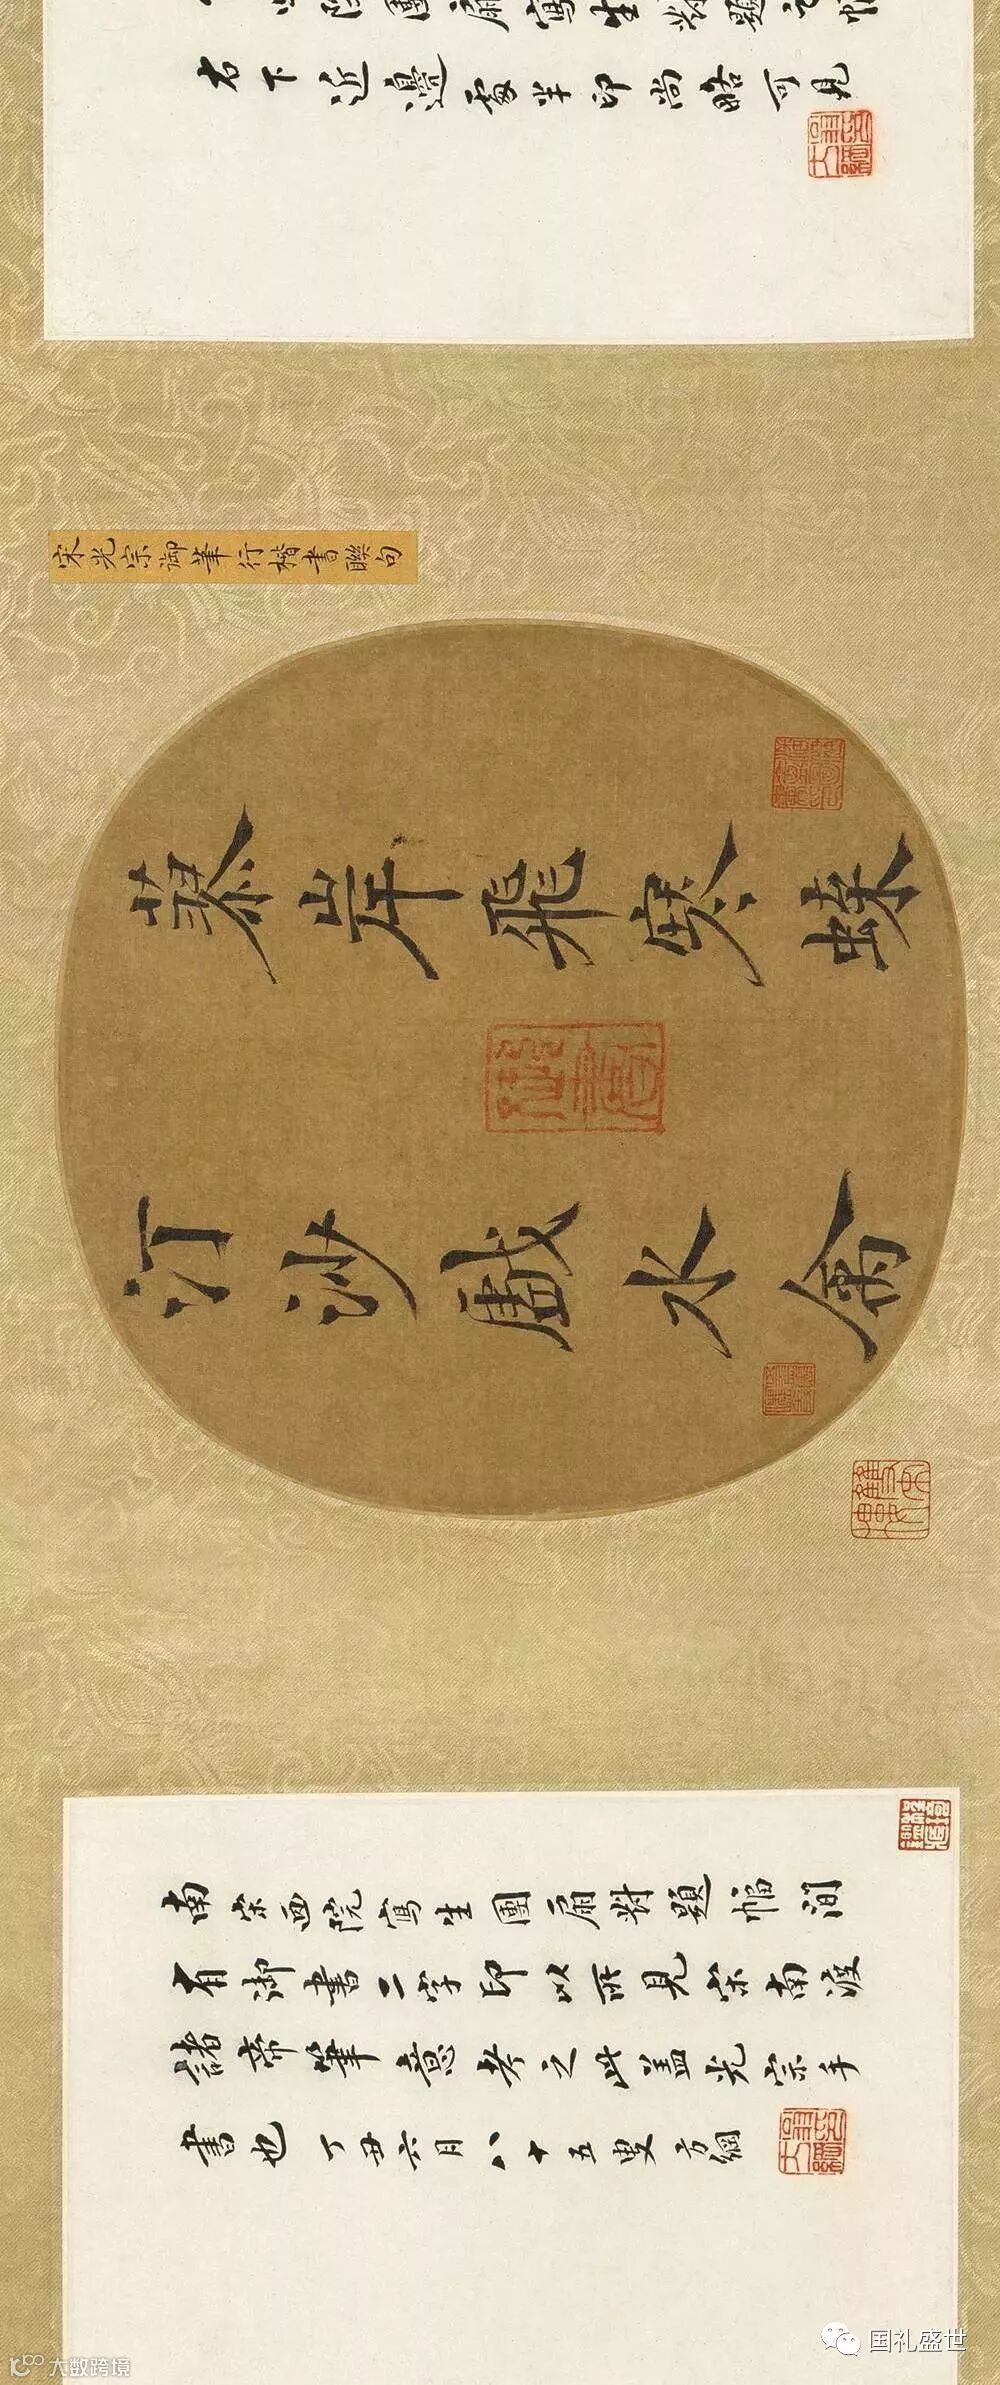 院團扇寫生對題之幅
右下近邊處半印尚略可見
宋光宗御筆行楷書聯句
蓼岸飛寒蝶
御書
汀沙戲水禽
南宋画院寫生團扇對題幅間
有御書二字印以所見宋南渡
諸帝筆意考之此蓋光宗手
書也 丁丑六月八十五叟方綱
国礼盛世
大数跨境